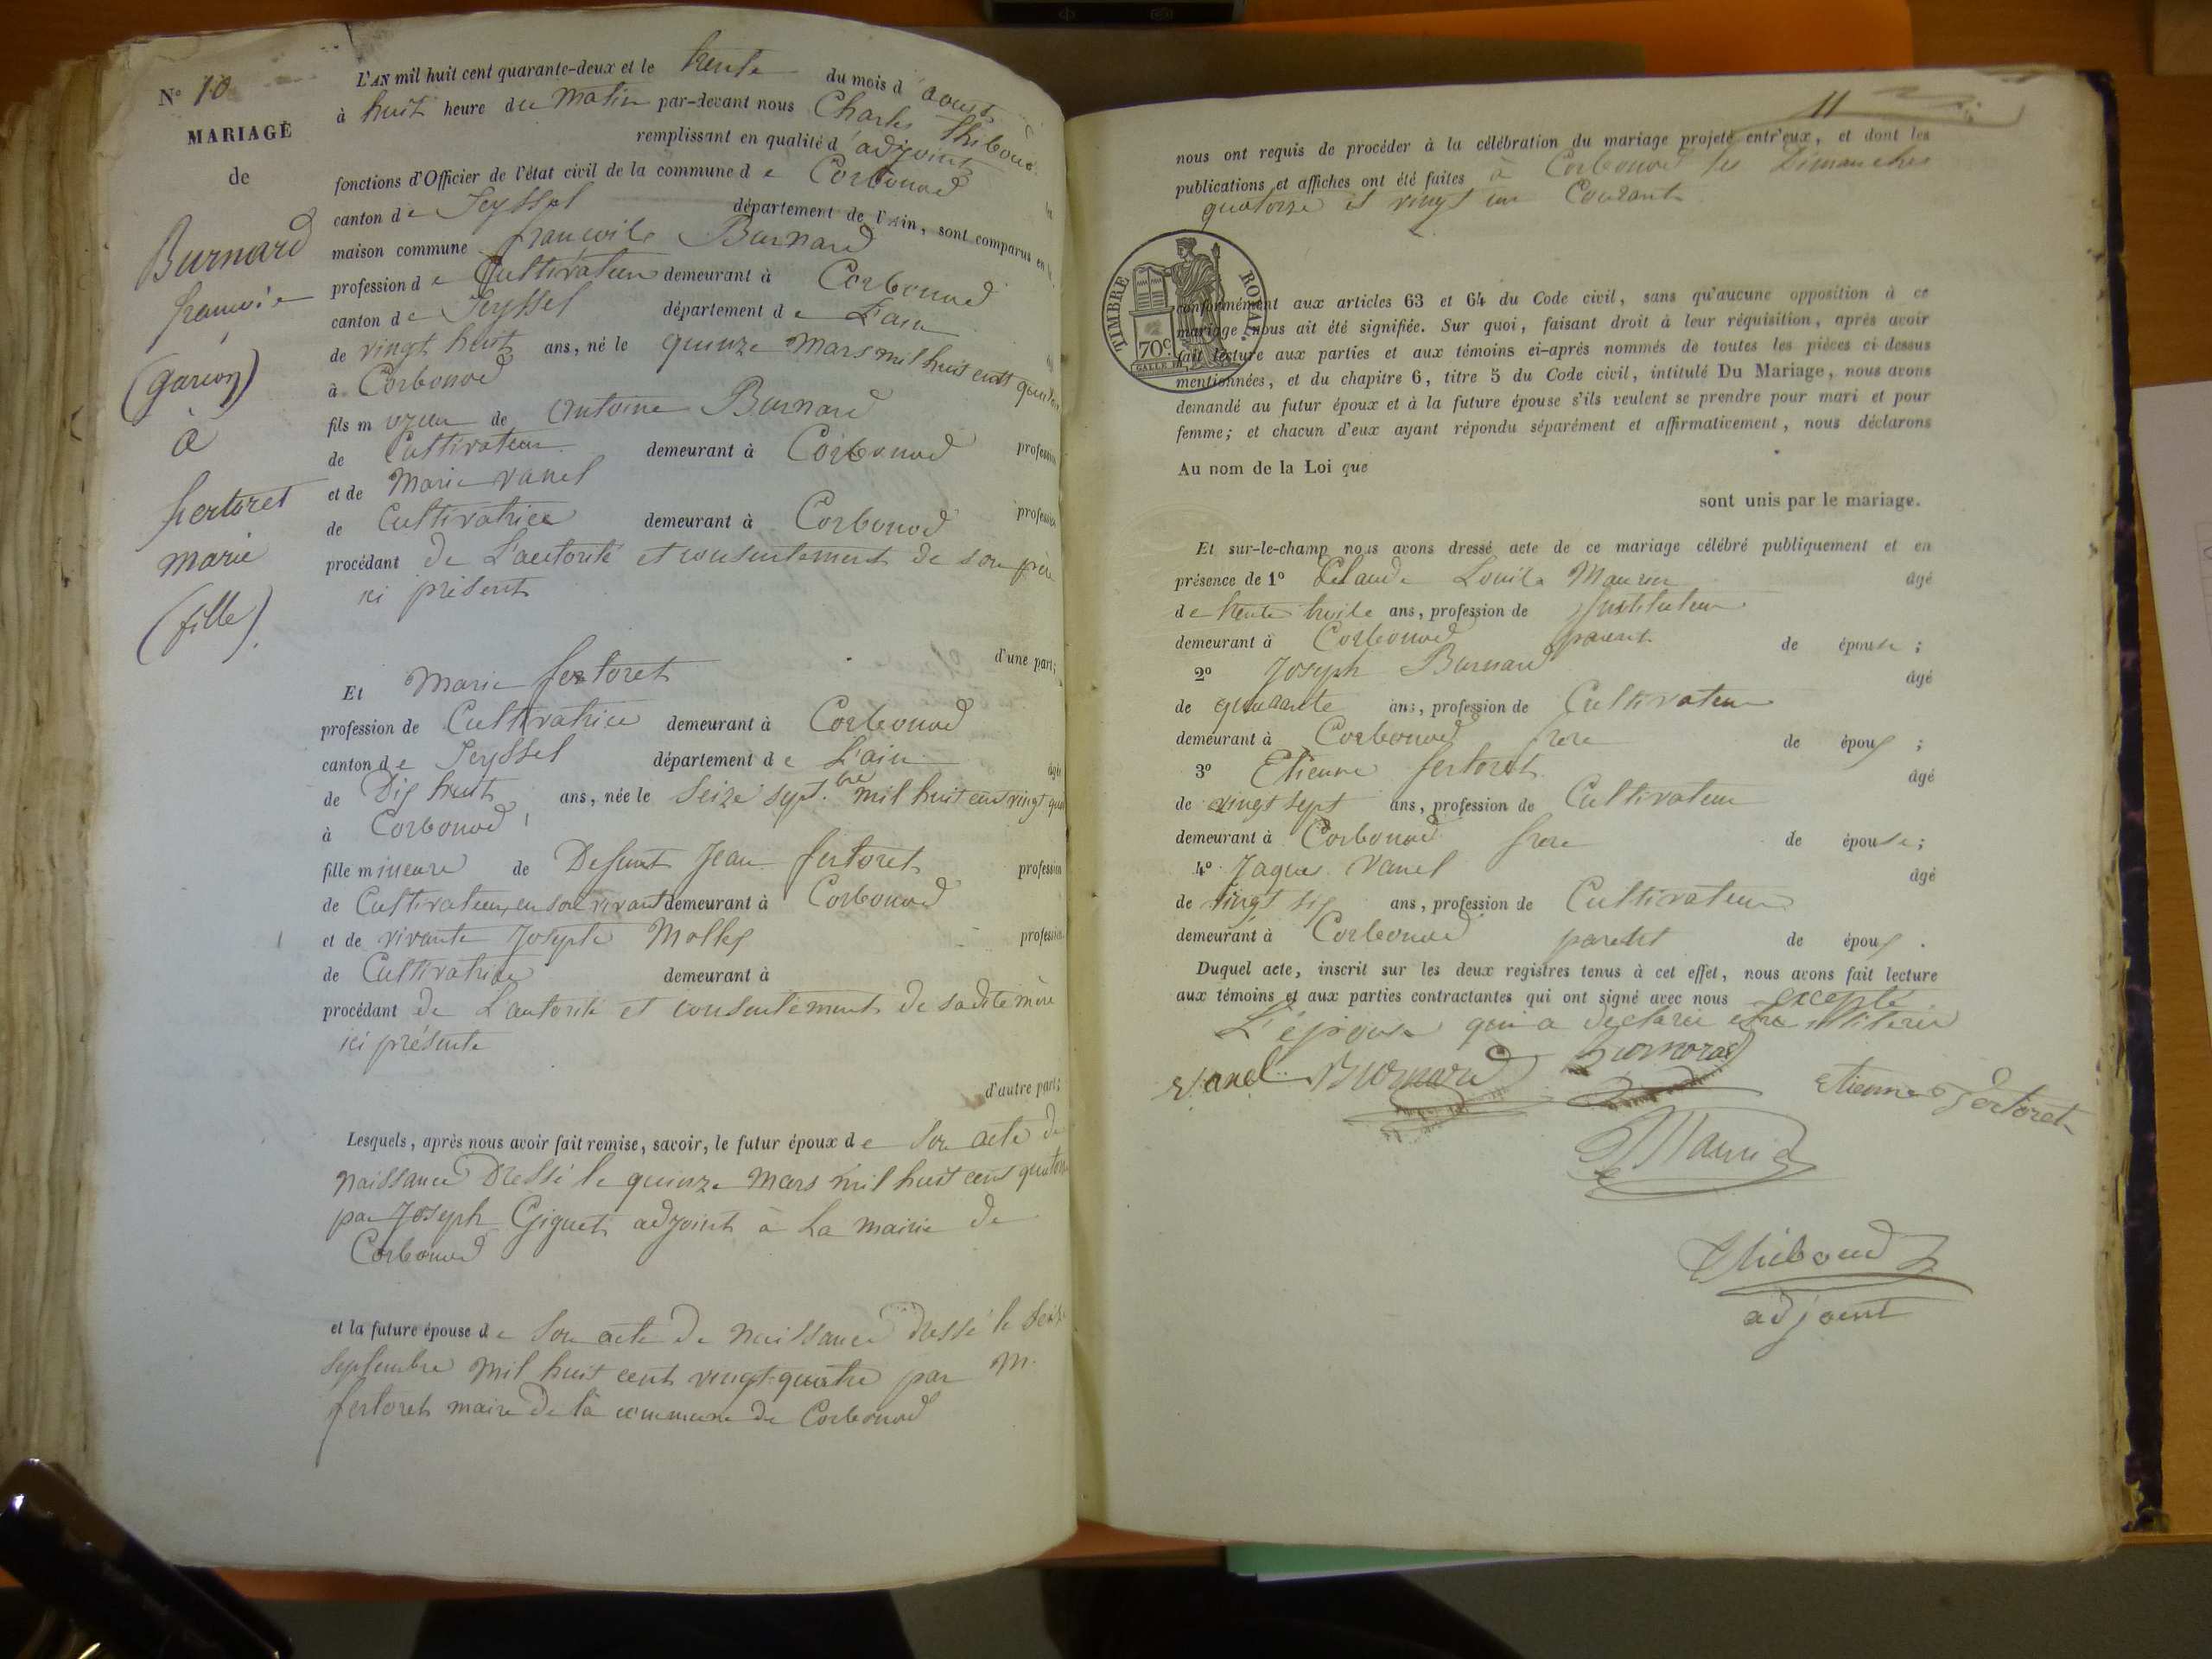 N° 10
MARIAGE
de
Burnard
françois
(garçon)
à
fertoret
marie
(fille)
L'AN mil huit cent quarante-deux et le trente du mois d'aoust
à huit heure du matin par-devant nous Charles Thiboud
remplissant en qualité d'adjoint
fonctions d'Officier de l'état civil de la commune de Corbonod
canton de Seyssel département de l'Ain, sont comparus en la
maison commune francois Burnard
profession de Cultivateur demeurant à Corbonod
canton de Seyssel département de L'ain
de vingt huit ans, né le quinze mars mil huit cent quatorze
à Corbonod
fils majeur de Antoine Burnard profession
de Cultivateur demeurant à Corbonod
et de Marie Vanel profession
de Cultivatrice demeurant à Corbonod
procédant de L'autorité et consentement de son père
ici présent
d'une part;
Et Marie fertoret
profession de Cultivatrice demeurant à Corbonod
canton de Seyssel département de L'ain âgée
de Dix huit ans, née le Seize sept.bre mil huit cent vingt quatre
à Corbonod
fille mineure de Defunt Jean fertoret profession
de Cultivateur, en son vivant demeurant à Corbonod
et de vivante Josephte Mollex profession
de Cultivatrice demeurant à
procédant de L'autorité et consentement de sadite mère
ici présente
d'autre part;
Lesquels, après nous avoir fait remise, savoir, le futur époux de Son acte de
naissance Dressé le quinze mars mil huit cent quatorze
par Joseph Giguet adjoint à la mairie de
Corbonod
et la future épouse de Son acte de naissance dressé le Seize
septembre mil huit cent vingt-quatre par M.
fertoret maire de la commune de Corbonod
11
nous ont requis de procéder à la célébration du mariage projeté entr'eux, et dont les
publications et affiches ont été faites à Corbonod les Dimanches
quatorze et vingt un Courant
TIMBRE ROYAL
70c
conformément aux articles 63 et 64 du Code civil, sans qu'aucune opposition à ce
mariage nous ait été signifiée. Sur quoi, faisant droit à leur réquisition, après avoir
fait lecture aux parties et aux témoins ci-après nommés de toutes les pièces ci-dessus
mentionnées, et du chapitre 6, titre 5 du Code civil, intitulé Du Mariage, nous avons
demandé au futur époux et à la future épouse s'ils veulent se prendre pour mari et pour
femme; et chacun d'eux ayant répondu séparément et affirmativement, nous déclarons
Au nom de la Loi que
sont unis par le mariage.
Et sur-le-champ nous avons dressé acte de ce mariage célébré publiquement et en
présence de 1° Claude Louis Maurier âgé
de trente trois ans, profession de Instituteur
demeurant à Corbonod parent de épouse;
2° Joseph Burnard âgé
de quarante ans, profession de Cultivateur
demeurant à Corbonod frere de époux;
3° Etienne fertoret âgé
de vingt sept ans, profession de Cultivateur
demeurant à Corbonod frere de épouse;
4° Jaques Vanel âgé
de vingt six ans, profession de Cultivateur
demeurant à Corbonod parent de époux.
Duquel acte, inscrit sur les deux registres tenus à cet effet, nous avons fait lecture
aux témoins et aux parties contractantes qui ont signé avec nous excepté
L'épouse qui a déclaré être illiterée
Vanel Burnard Burnard
Etienne Fertoret
Thiboud
adjoint